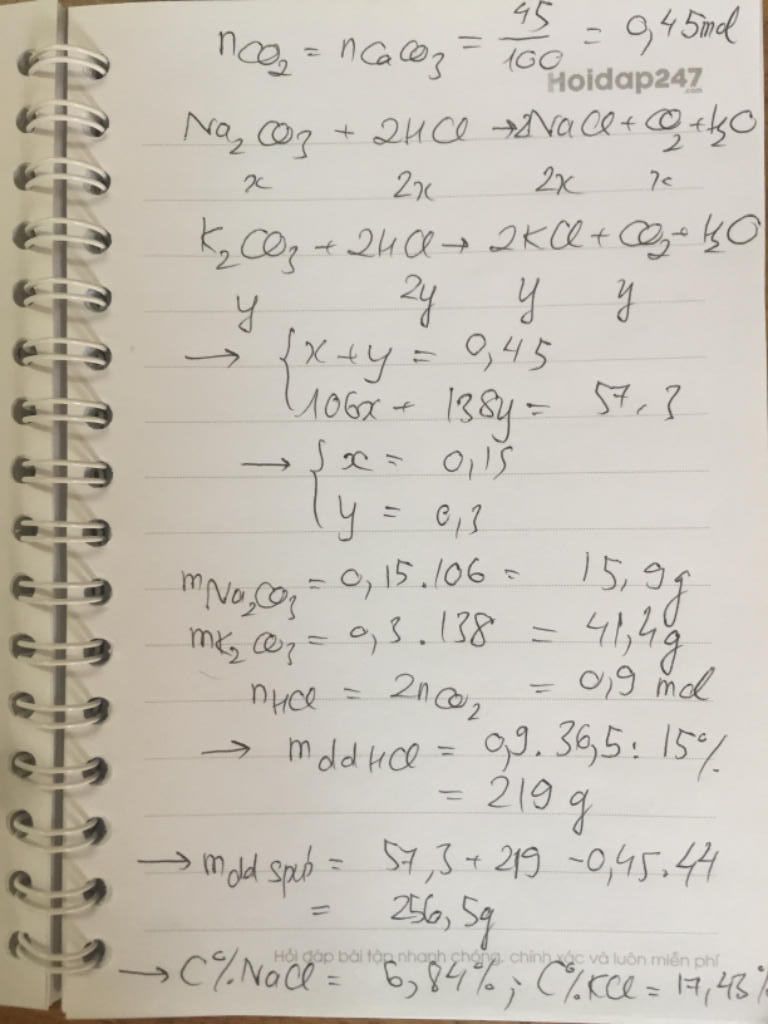 nCO₂ = nCaCO₃ = 45/100 = 0,45 mol
Hoidap247
.com
Na₂CO₃ + 2HCl → 2NaCl + CO₂ + H₂O
x 2x 2x x
K₂CO₃ + 2HCl → 2KCl + CO₂ + H₂O
y 2y y y
→ { x + y = 0,45
106x + 138y = 57,3
→ { x = 0,15
y = 0,3
mNa₂CO₃ = 0,15.106 = 15,9g
mK₂CO₃ = 0,3.138 = 41,4g
nHCl = 2nCO₂ = 0,9 mol
→ mddHCl = 0,9.36,5:15%
= 219 g
→ mdd spứ = 57,3 + 219 - 0,45.44
= 256,5g
Hỏi đáp bài tập nhanh chóng, chính xác và luôn miễn phí
→ C%NaCl = 6,84%; C%KCl = 17,43%